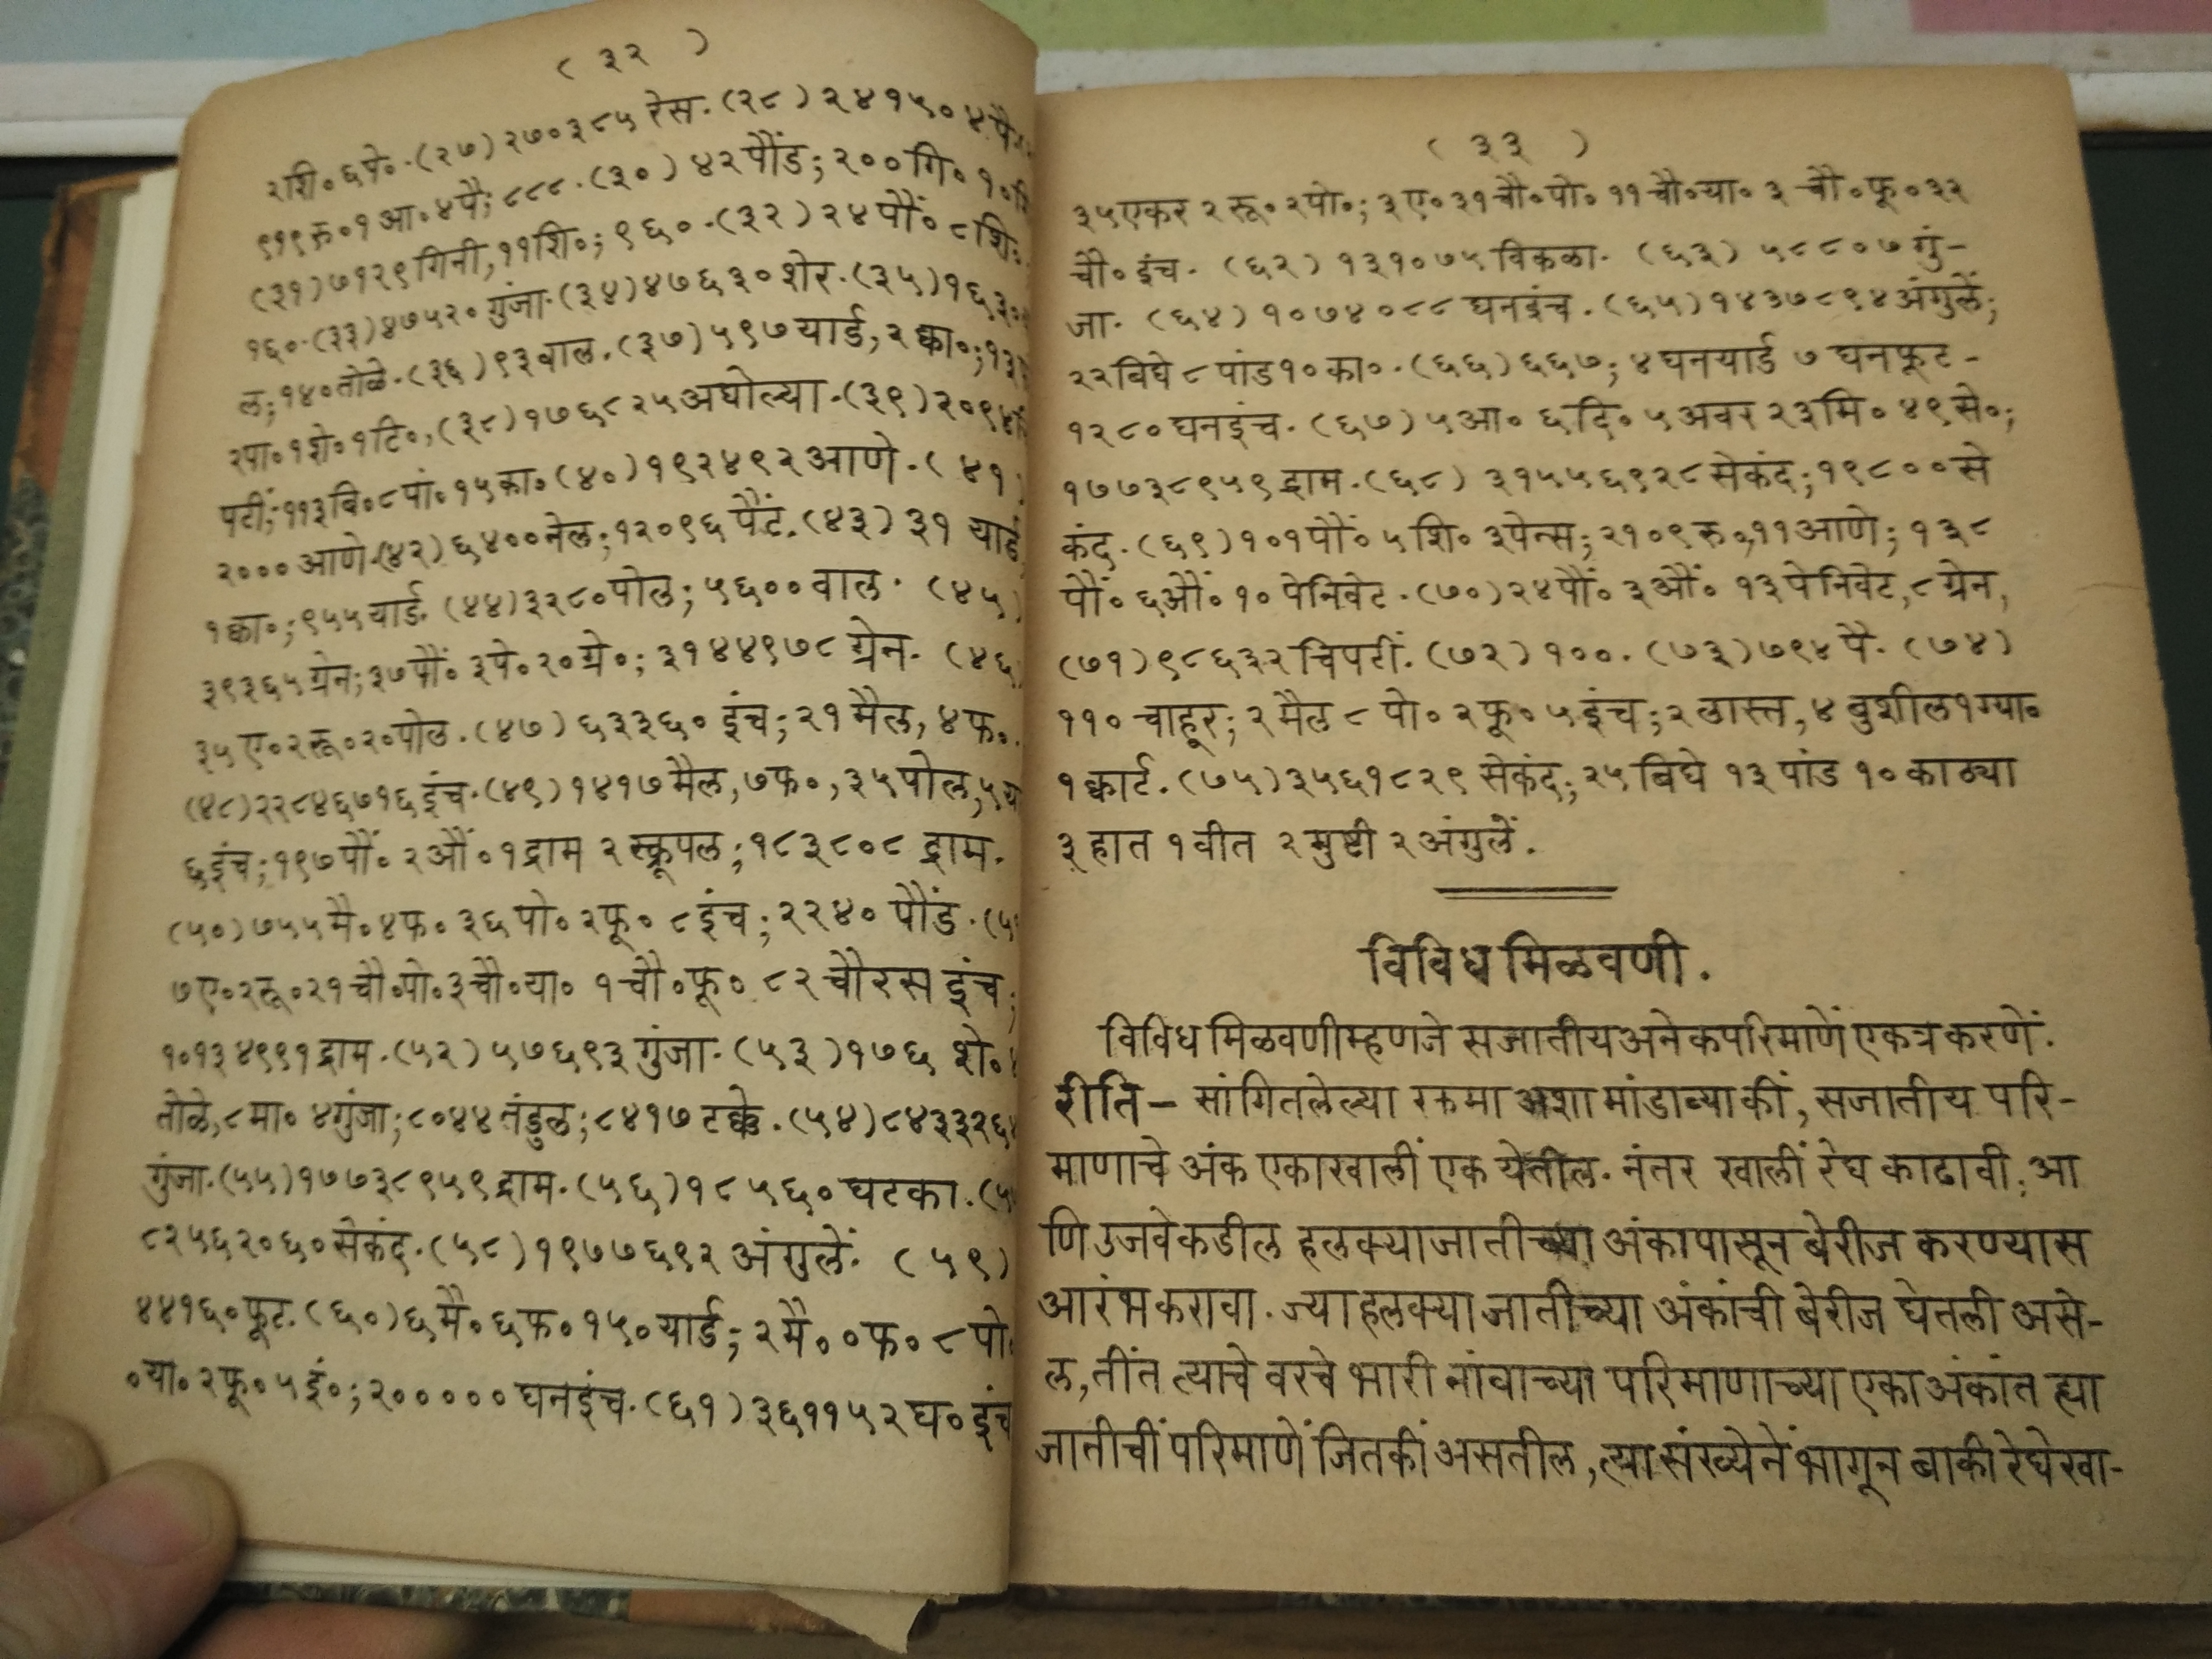 ( ३२ )
२शि० ६पे०. (२७) २७०३८५ रेस. (२८) २४१५० ४पै
९१९रु०१आ०४पै; ८८८. (३०) ४२पौंड; २००गि० १०
(३१) ७१२९गिनी, ११शि०; ९६०. (३२) २४पौं० ८शि०
१६०. (३३) ४७५२० गुंजा. (३४) ४७६३०शेर. (३५) १६३०
ल; १४०तोळे. (३६) ९३वाल. (३७) ५९७यार्ड, २ क्वा०; १३
२पा०१शे०१टि०, (३८) १७६८२५अघोल्या. (३९) २०९४
पटीं; ११३बि०८पां०१५का० (४०) १९२४९२आणे. (४१)
२००० आणे.(४२) ६४००नेल; १२०९६ पैंट. (४३) ३१ यार्ड
१क्वा०; ९५५यार्ड. (४४) ३२८०पोल; ५६००वाल. (४५)
३९३६५ग्रेन; ३७पौं० ३पे०२०ग्रे०; ३१४४९७८ग्रेन. (४६
३५ए०२रू०२०पोल. (४७) ६३३६० इंच; २१मैल, ४फ०
(४८) २२८४६७१६इंच. (४९) १४१७मैल, ७फ०, ३५पोल, ५या
६इंच; १९७पौं० २औं०१द्राम २स्क्रूपल; १८३८०८ द्राम.
(५०) ७५५मै०४फ० ३६पो०२फू० ८इंच; २२४० पौंड. (५
७ए०२रू०२१चौ०पो०३चौ०या० १चौ०फू० ८२चौरस इंच;
१०१३४९९१द्राम. (५२) ५७६९३गुंजा. (५३) १७६ शे०
तोळे, ८मा० ४गुंजा; ८०४४तंडुल; ८४१७टक्के. (५४) ८४३३२६
गुंजा. (५५) १७७३८९५९द्राम. (५६) १८५६०घटका. (५
८२५६२०६०सेकंद. (५८) १९७७६९२ अंगुलें. (५९)
४४१६०फूट. (६०) ६मै०६फ०१५०यार्ड; २मै००फ० ८पो०
०या०२फू०५इं०; २०००००घनइंच. (६१) ३६११५२घ०इंच
( ३३ )
३५एकर २रू०२पो०; ३ए०३१चौ०पो०११चौ०या० ३चौ०फू०३२
चौ०इंच. (६२) १३१०७५विकळा. (६३) ५८८०७गुं-
जा. (६४) १०७४०८८घनइंच. (६५) १४३७८९४अंगुलें;
२२बिघे८पांड१०का०. (६६) ६६७; ४घनयार्ड ७घनफूट-
१२८०घनइंच. (६७) ५आ० ६दि० ५अवर २३मि० ४९से०;
१७७३८९५९द्राम. (६८) ३१५५६९२८सेकंद; १९८००से
कंद. (६९) १०१पौं० ५शि० ३पेन्स; २१०९रु०,११आणे; १३८
पौं०६औं०१०पेनिवेट. (७०) २४पौं० ३औं० १३पेनिवेट, ८ग्रेन,
(७१) ९८६३२चिपटीं. (७२) १००. (७३) ७९४पै. (७४)
११० चाहूर; २मैल ८पो०२फू०५इंच; २लास्त, ४बुशील१ग्या०
१क्वार्ट. (७५) ३५६१८२९ सेकंद; २५बिघे १३पांड १०काठ्या
३हात १वीत २मुष्टी २अंगुलें.
विविध मिळवणी.
विविध मिळवणीम्हणजे सजातीयअनेकपरिमाणें एकत्र करणें.
रीति – सांगितलेल्या रकमा अशा मांडाव्या कीं, सजातीय परि-
माणाचे अंक एकाखालीं एक येतील. नंतर खालीं रेघ काढावी; आ
णि उजवेकडील हलक्या जातीच्या अंकापासून बेरीज करण्यास
आरंभ करावा. ज्या हलक्या जातीच्या अंकांची बेरीज घेतली असे-
ल, तींत त्याचे वरचे भारी नांवाच्या परिमाणाच्या एका अंकांत ह्या
जातीचीं परिमाणें जितकीं असतील, त्या संख्येनें भागून बाकी रेघेखा-